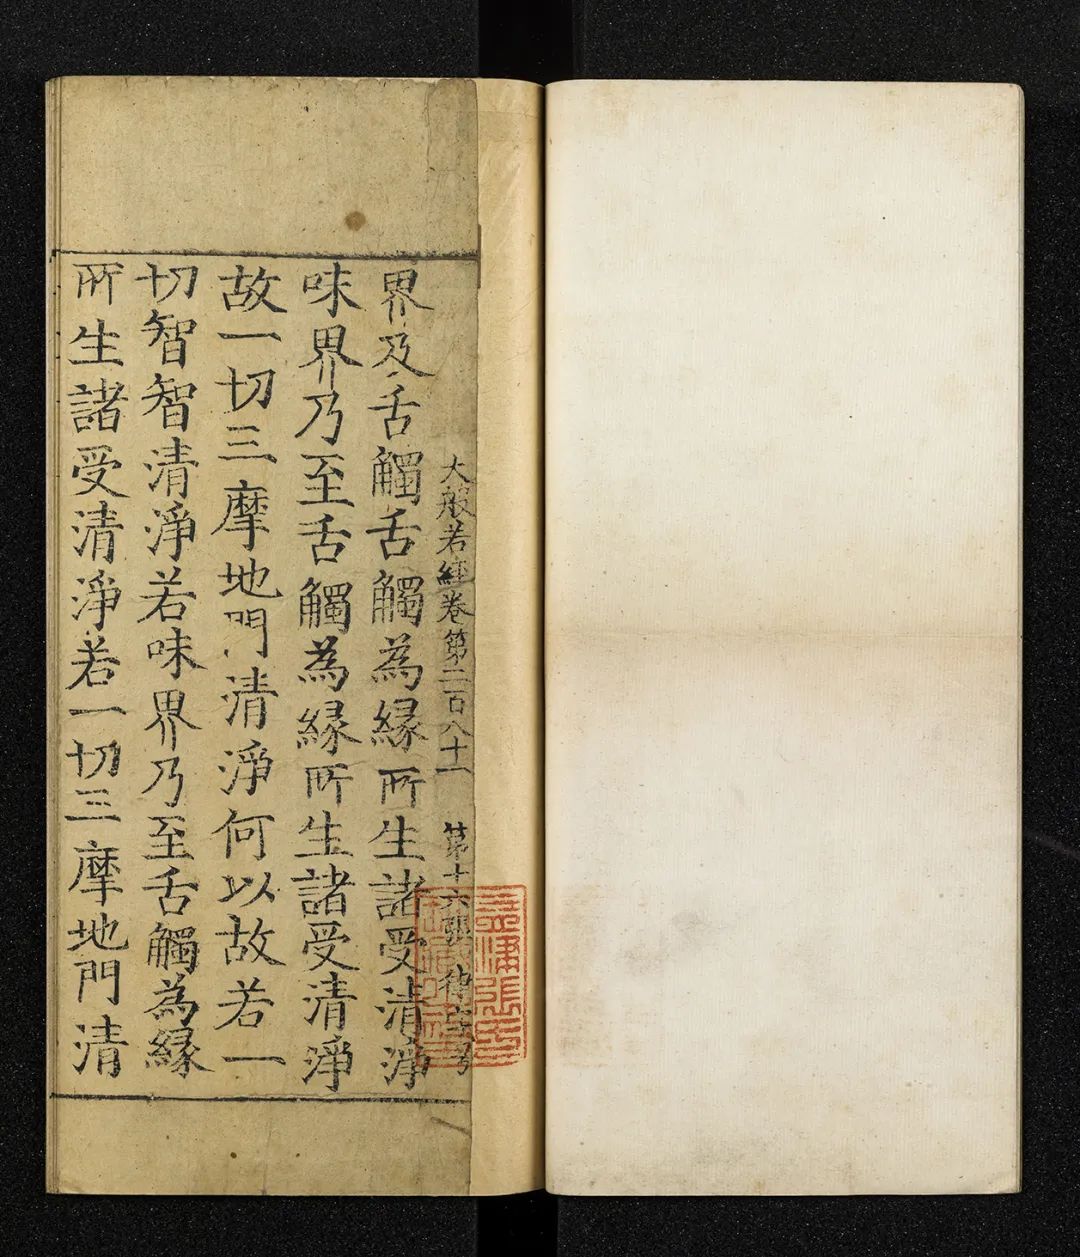 大般若經卷第二百八十一 第十六張 字号
界及舌觸舌觸為緣所生諸受清淨
味界乃至舌觸為緣所生諸受清淨
故一切三摩地門清淨何以故若一
切智智清淨若味界乃至舌觸為緣
所生諸受清淨若一切三摩地門清